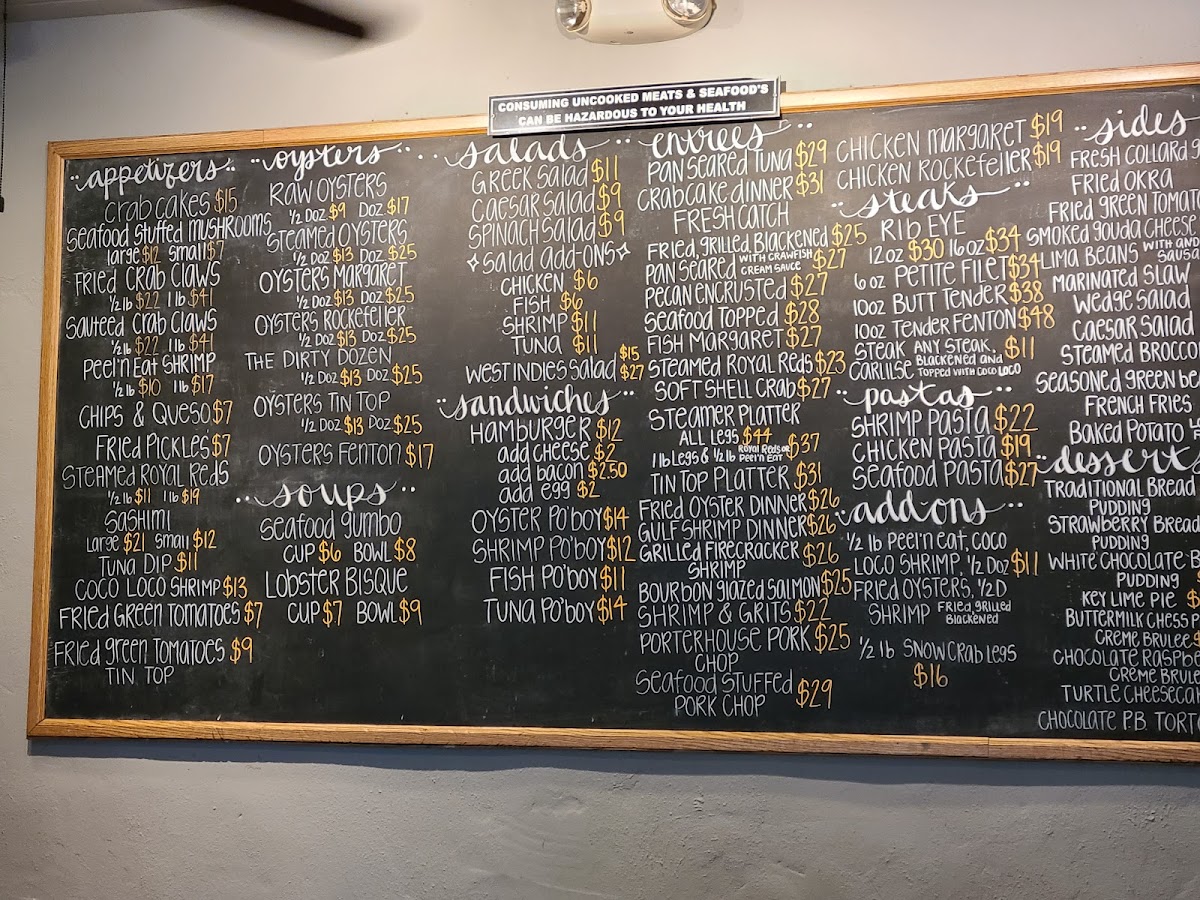 CONSUMING UNCOOKED MEATS & SEAFOOD'S
CAN BE HAZARDOUS TO YOUR HEALTH
appetizers
crab cakes $15
seafood stuffed mushrooms
large $12 small $7
Fried crab claws
1/2 lb $22 1 lb $41
sauteed crab claws
1/2 lb $22 1 lb $41
Peel'n Eat Shrimp
1/2 lb $10 1 lb $17
CHIPS & QUESO $7
Fried Pickles $7
STEAMED ROYAL REDS
1/2 lb $11 1 lb $19
SASHIMI
Large $21 Small $12
TUNA DIP $11
COCO LOCO SHRIMP $13
FRIED GREEN TOMATOES $7
Fried green TOMATOES $9
TIN TOP
oysters
RAW OYSTERS
1/2 DOZ $9 DOZ $17
STEAMED OYSTERS
1/2 DOZ $13 DOZ $25
OYSTERS MARGARET
1/2 DOZ $13 DOZ $25
OYSTERS ROCKEFELLER
1/2 DOZ $13 DOZ $25
THE DIRTY DOZEN
1/2 DOZ $13 DOZ $25
OYSTERS TIN TOP
1/2 DOZ $13 DOZ $25
OYSTERS FENTON $17
soups
seafood gumbo
CUP $6 BOWL $8
LOBSTER BISQUE
CUP $7 BOWL $9
salads
GREEK SALAD $11
CAESAR SALAD $9
SPINACH SALAD $9
salad add-ons
CHICKEN $6
FISH $6
SHRIMP $11
TUNA $11
WEST INDIES SALAD $15
$27
sandwiches
HAMBURGER $12
add cheese $2
add bacon $2.50
add egg $2
OYSTER PO'BOY $14
SHRIMP PO'BOY $12
FISH PO'BOY $11
TUNA PO'BOY $14
entrees
PAN SEARED TUNA $29
CRABCAKE DINNER $31
FRESH CATCH
FRIED, GRILLED BLACKENED $25
PAN SEARED WITH CRAWFISH CREAM SAUCE $27
PECAN ENCRUSTED $27
SEAFOOD TOPPED $28
FISH MARGARET $27
STEAMED ROYAL REDS $23
SOFT SHELL CRAB $27
STEAMER PLATTER
ALL LEGS $44
1 lb LEGS & 1/2 lb ROYAL REDS OR PEEL'N EAT $37
TIN TOP PLATTER $31
FRIED OYSTER DINNER $26
GULF SHRIMP DINNER $26
GRILLED FIRECRACKER $26
SHRIMP
BOURBON GLAZED SALMON $25
SHRIMP & GRITS $22
PORTERHOUSE PORK $25
CHOP
SEAFOOD STUFFED $29
PORK CHOP
CHICKEN MARGARET $19
CHICKEN ROCKEFELLER $19
steaks
RIB EYE
12oz $30 16oz $34
6 oz PETITE FILET $34
10oz BUTT TENDER $38
10oz TENDER FENTON $48
STEAK ANY STEAK, $11
CARLILSE BLACKENED AND TOPPED WITH COCO LOCO
pastas
SHRIMP PASTA $22
CHICKEN PASTA $19
SEAFOOD PASTA $27
add-ons
1/2 lb PEEL'N EAT, COCO
LOCO SHRIMP, 1/2 DOZ $11
FRIED OYSTERS, 1/2 D
SHRIMP FRIED, GRILLED BLACKENED
1/2 lb SNOW CRAB LEGS
$16
sides
FRESH COLLARD g
FRIED OKRA
FRIED GREEN TOMAT
SMOKED GOUDA CHEESE
LIMA BEANS WITH AND SAUSA
MARINATED SLAW
WEDGE SALAD
CAESAR SALAD
STEAMED BROCCO
SEASONED GREEN BE
FRENCH FRIES
BAKED POTATO
desserts
TRADITIONAL BREAD
PUDDING
STRAWBERRY BREAD
PUDDING
WHITE CHOCOLATE B
PUDDING
KEY LIME PIE $
BUTTERMILK CHESS P
CREME BRULEE $
CHOCOLATE RASPBE
CREME BRULE
TURTLE CHEESECA
CHOCOLATE P.B. TORT